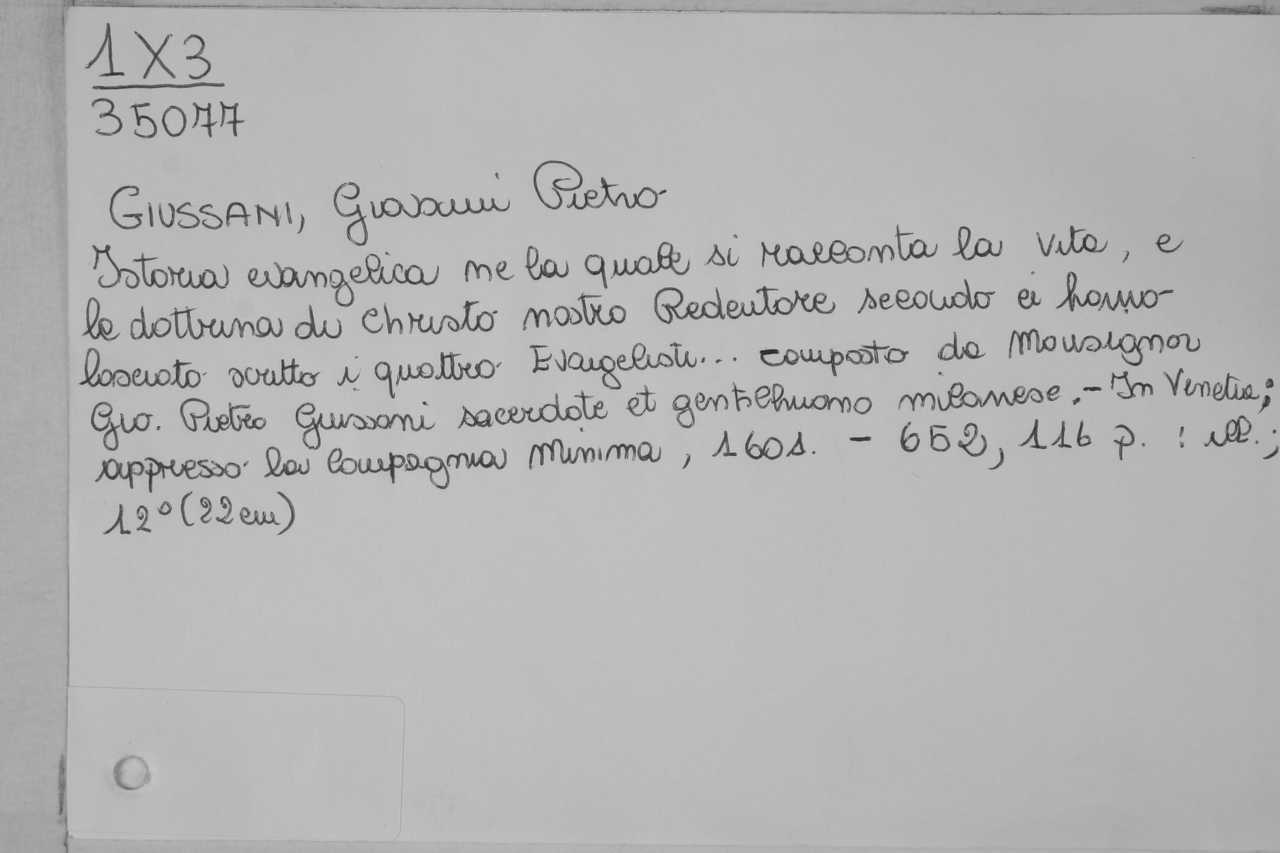 1X3
35077
GIUSSANI, Giovanni Pietro
Istoria evangelica ne la quale si racconta la vita, e
le dottrina di Christo nostro Redentore secondo ci hanno
lasciato scritto i quattro Evangelisti... composto da Monsignor
Gio. Pietro Giussani sacerdote et gentilhuomo milanese. - In Venetia;
appresso la Compagnia Minima, 1601. - 652, 116 p. : ill.;
12° (22 cm)